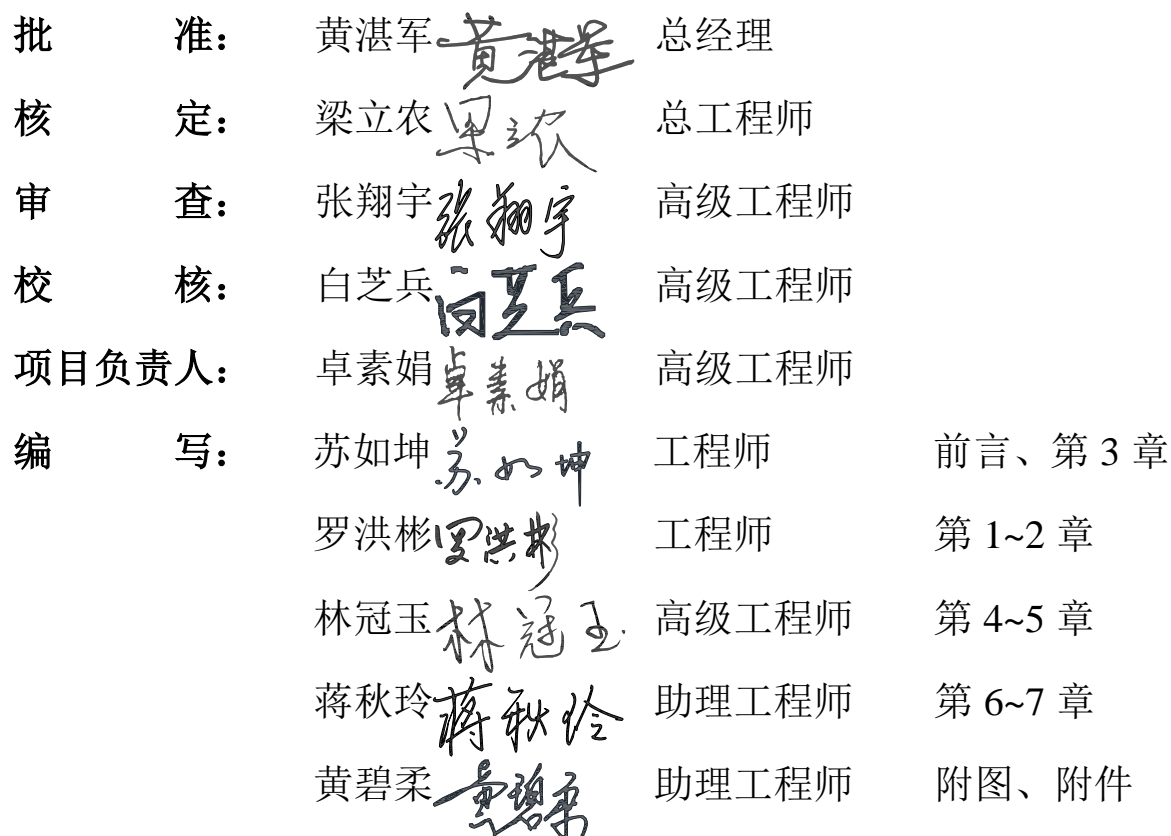 批 准： 黄湛军 黄湛军 总经理
核 定： 梁立农 梁立农 总工程师
审 查： 张翔宇 张翔宇 高级工程师
校 核： 白芝兵 白芝兵 高级工程师
项目负责人： 卓素娟 卓素娟 高级工程师
编 写： 苏如坤 苏如坤 工程师 前言、第 3 章
罗洪彬 罗洪彬 工程师 第 1~2 章
林冠玉 林冠玉 高级工程师 第 4~5 章
蒋秋玲 蒋秋玲 助理工程师 第 6~7 章
黄碧柔 黄碧柔 助理工程师 附图、附件